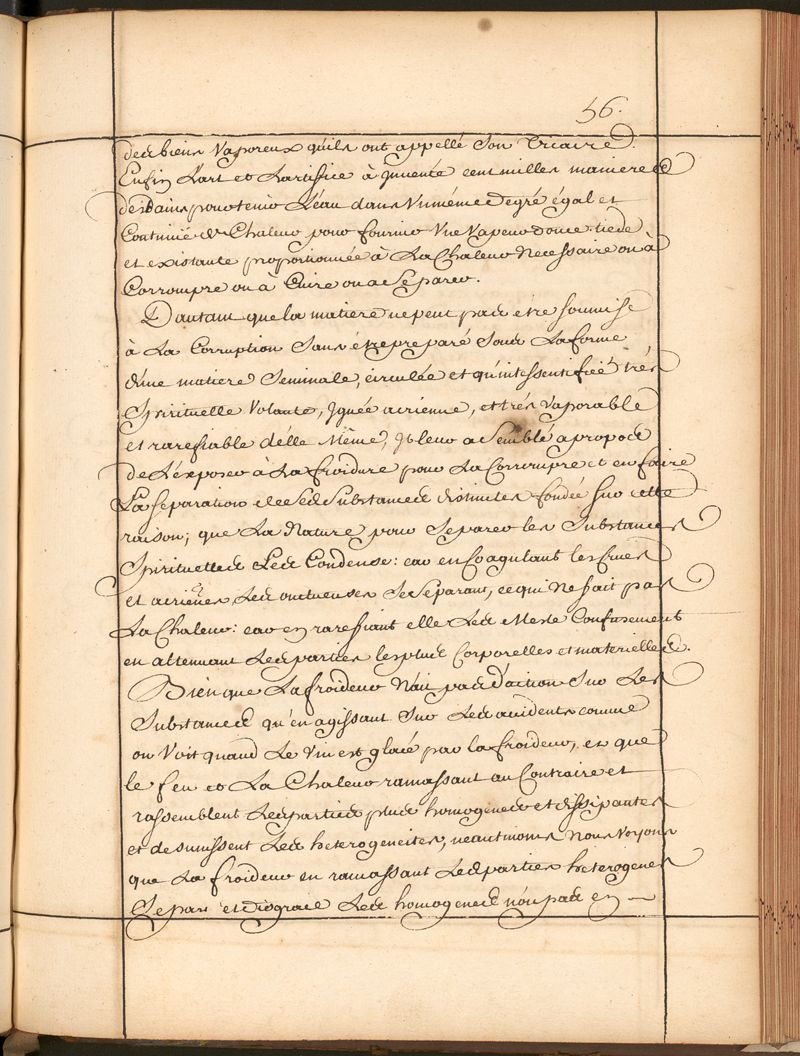 56.
des biens Vaporeux quils ont appellé Son Triaire.
Enfin L'art et Lartifice à Jnventé cent milles manieres
des bains pour tenir L'eau dans Vn méme degré égal et
Continüé de Chaleur pour fournir Vne Vapeur douce tiede
et existante proportionnée à La Chaleur Necessaire ou à
Corrompre ou à Cuire ou a Separer.
Dautant que la matiere ne peut pas étre soumise
à La Corruption Sans étre preparé Sous La forme
d'une matiere Seminale, circulée et quintessentifieé trés
Spirituelle Volante, Jgnée aërienne, et trés Vaporable
et rarefiable d'elle Méme, Jl leur a Semblé apropos
de L'exposer à La froidure pour La Corrompre et en faire
La Separation de Ses Substances distinctes fondée sur cette
raison; que La Nature pour Separer les Substances
Spirituelles Les Condense: car en Coagulant les Crues
et aeriénes Les onctueuses Se Separant, ce qui Ne fait pas
La Chaleur: car en rarefiant elle Les Mesle Confusement
en attenuant Les parties les plus Corporelles et materielles.
Bien que La froideur N'ait pas d'action Sur Les
Substances qu'en agissant Sur Les accidents comme
on Voit quand Le Vin est glacé par la froideur, et que
le feu et La Chaleur ramassant au Contraire et
rassemblent Les parties plus homogenes et dissipantes
et desunissent Les heterogeneités, neautmoins Nous Voyons
que La froideur en ramassant Les parties heterogenes
Separe et Les homogenes non pas en